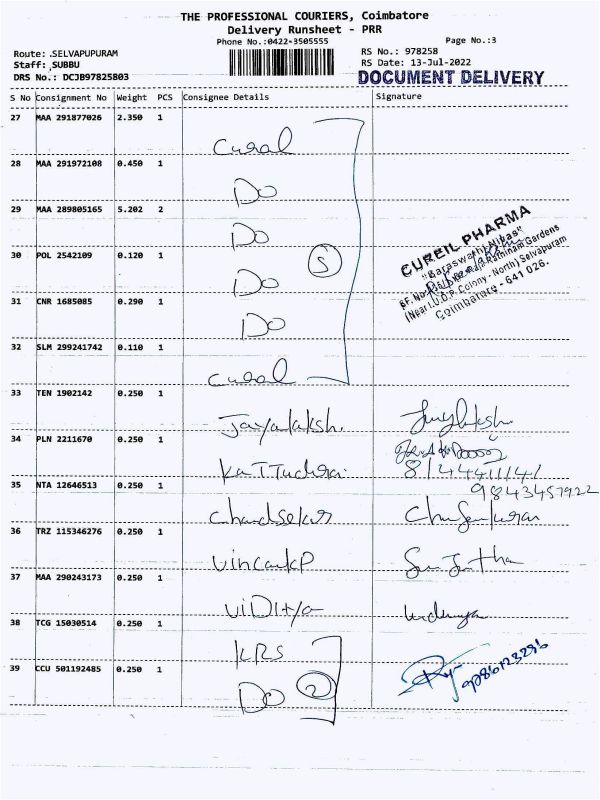 THE PROFESSIONAL COURIERS, Coimbatore
Delivery Runsheet - PRR
Phone No.:0422-3505555
Page No.:3
Route: .SELVAPUPURAM
RS No.: 978258
Staff: SUBBU
RS Date: 13-Jul-2022
DRS No.: DCJB97825803
DOCUMENT DELIVERY
S No Consignment No Weight PCS Consignee Details Signature
27 MAA 291877026 2.350 1
Cural
28 MAA 291972108 0.450 1
Do
29 MAA 289805165 5.202 2
Do
CUREIL PHARMA
"Saraswathi Nivas"
Rathinam Gardens
(Near I.U.D.P. Colony - North) Selvapuram
Coimbatore - 641 026.
30 POL 2542109 0.120 1
5
Do
31 CNR 1685085 0.290 1
Do
32 SLM 299241742 0.110 1
Cural
33 TEN 1902142 0.250 1
Jayalaksh. Jayalaksh.
34 PLN 2211670 0.250 1
KaTTudurai
35 NTA 12646513 0.250 1
9843457922
Chandsekar
36 TRZ 115346276 0.250 1
37 MAA 290243173 0.250 1
ViDitya
38 TCG 15030514 0.250 1
KRS
39 CCU 501192485 0.250 1
Do 2